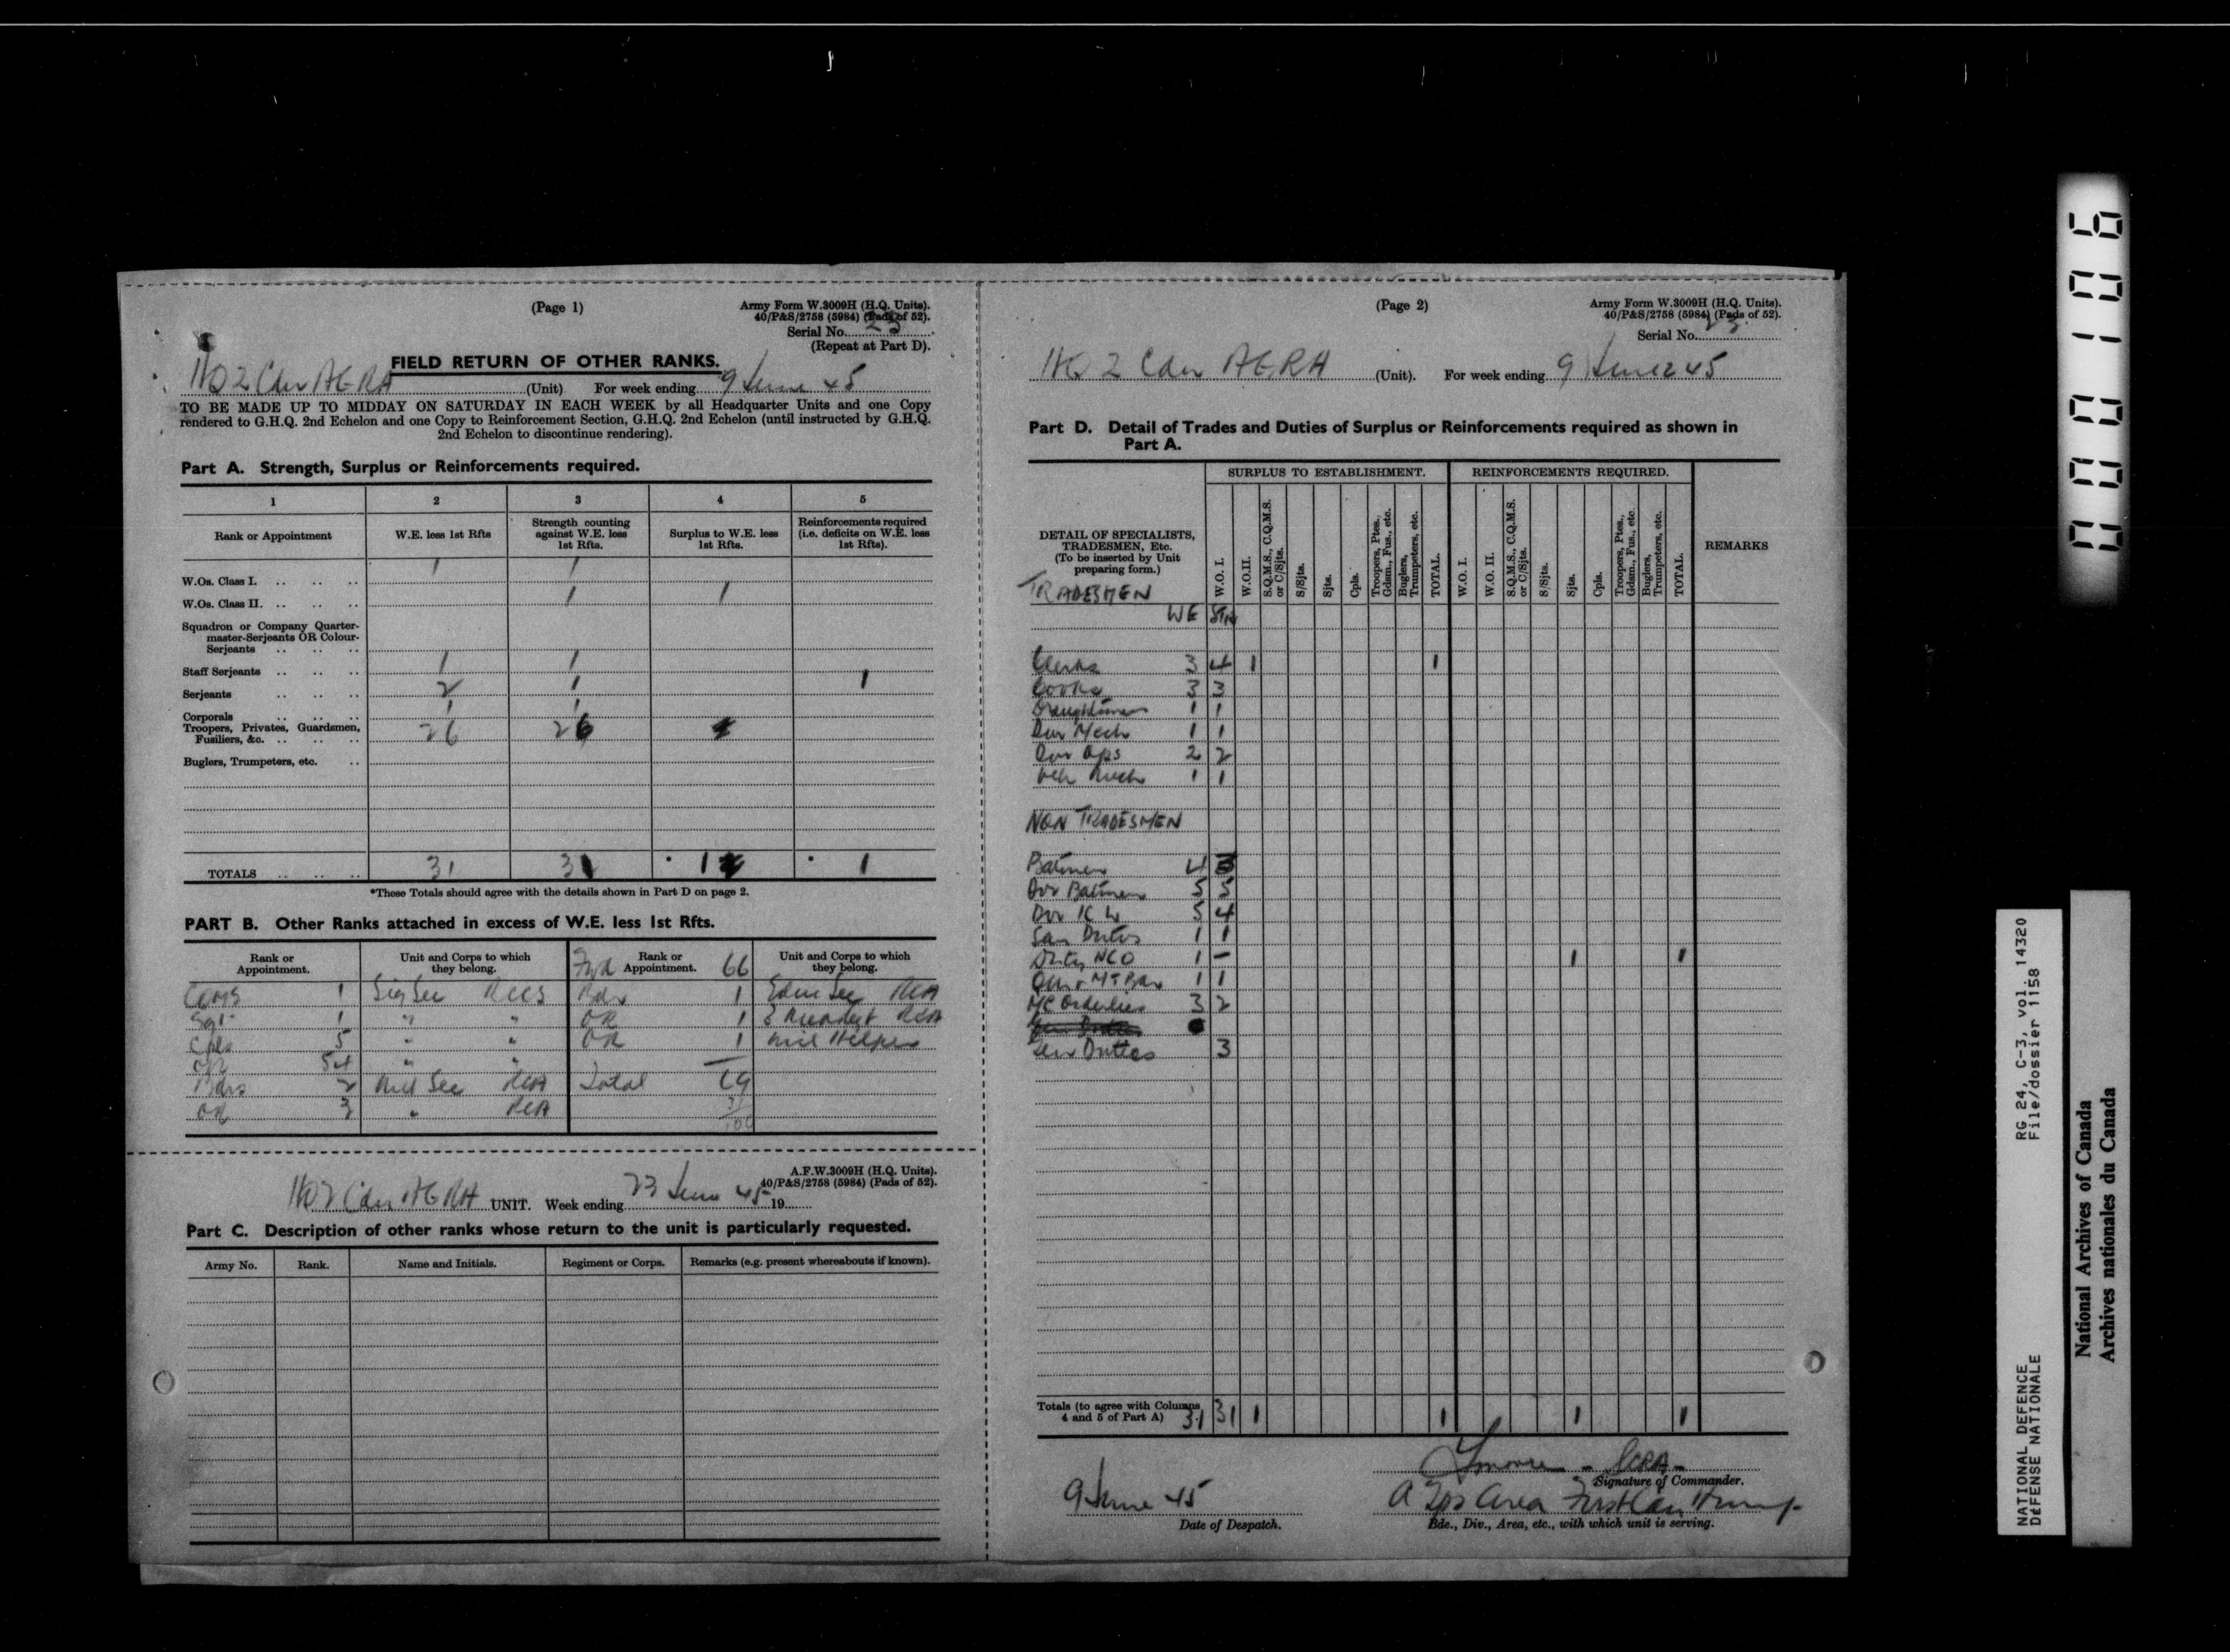 (Page 1)
Army Form W.3009H (H.Q. Units).
40/P&S/2758 (5984) (Pads of 52).
Serial No. 23
(Repeat at Part D).
FIELD RETURN OF OTHER RANKS.
HQ 2 Cdn AGRA (Unit) For week ending 9 June 45
TO BE MADE UP TO MIDDAY ON SATURDAY IN EACH WEEK by all Headquarter Units and one Copy
rendered to G.H.Q. 2nd Echelon and one Copy to Reinforcement Section, G.H.Q. 2nd Echelon (until instructed by G.H.Q.
2nd Echelon to discontinue rendering).
Part A. Strength, Surplus or Reinforcements required.
1 2 3 4 5
Rank or Appointment
W.E. less 1st Rfts
Strength counting against W.E. less 1st Rfts.
Surplus to W.E. less 1st Rfts.
Reinforcements required (i.e. deficits on W.E. less 1st Rfts).
W.Os. Class I. .. .. .. 1 1
W.Os. Class II. .. .. .. 1 1
Squadron or Company Quarter-
master-Serjeants OR Colour-
Serjeants .. .. ..
Staff Serjeants .. .. .. 1 1
Serjeants .. .. .. 2 1 1
Corporals .. .. .. 1 1
Troopers, Privates, Guardsmen,
Fusiliers, &c. .. .. .. 26 26
Buglers, Trumpeters, etc. ..
TOTALS .. .. .. 31 31 * 1 * 1
*These Totals should agree with the details shown in Part D on page 2.
PART B. Other Ranks attached in excess of W.E. less 1st Rfts.
Rank or Appointment.
Unit and Corps to which they belong.
Fwd Rank or Appointment. 66
Unit and Corps to which they belong.
CQMS 1 Sig Sec RCCS Bdr 1 Educ Sec RCA
Sgt 1 " " OR 1 RCA
Cpls 5 " " OR 1
OR 54 " "
Bdrs 2 Sec RCA Total 69
OR 3 " RCA 31
100
A.F.W.3009H (H.Q. Units).
40/P&S/2758 (5984) (Pads of 52).
HQ 2 Cdn AGRA UNIT. Week ending 23 June 45 19
Part C. Description of other ranks whose return to the unit is particularly requested.
Army No. Rank. Name and Initials. Regiment or Corps. Remarks (e.g. present whereabouts if known).
(Page 2)
Army Form W.3009H (H.Q. Units).
40/P&S/2758 (5984) (Pads of 52).
Serial No. 23
HQ 2 Cdn AGRA (Unit). For week ending 9 June 45
Part D. Detail of Trades and Duties of Surplus or Reinforcements required as shown in
Part A.
SURPLUS TO ESTABLISHMENT. REINFORCEMENTS REQUIRED.
DETAIL OF SPECIALISTS,
TRADESMEN, Etc.
(To be inserted by Unit
preparing form.)
W.O. I.
W.O.II.
S.Q.M.S., C.Q.M.S. or C/Sjts.
S/Sjts.
Sjts.
Cpls.
Troopers, Ptes., Gdsm., Fus., etc.
Buglers, Trumpeters, etc.
TOTAL.
W.O. I.
W.O. II.
S.Q.M.S., C.Q.M.S. or C/Sjts.
S/Sjts.
Sjts.
Cpls.
Troopers, Ptes., Gdsm., Fus., etc
Buglers, Trumpeters, etc.
TOTAL.
REMARKS
TRADESMEN
WE Str
Clerks 3 4 1 1
Cooks 3 3
Draughtsmen 1 1
Dvr Mech 1 1
Dvr Ops 2 2
Veh Mech 1 1
NON TRADESMEN
Batmen 4 3
Dvr Batmen 5 5
Dvr IC 5 4
San Duties 1 1
Duty NCO 1 – 1 1
1 1
MC Orderlies 3 2
Gen Duties 3
Totals (to agree with Columns
4 and 5 of Part A) 31 31 1 1 1 1
Signature of Commander.
9 June 45
Date of Despatch.
A Tps Area First Cdn Army
Bde., Div., Area, etc., with which unit is serving.
0001016
RG 24, C-3, vol. 14320
File/dossier 1158
NATIONAL DEFENCE
DÉFENSE NATIONALE
National Archives of Canada
Archives nationales du Canada